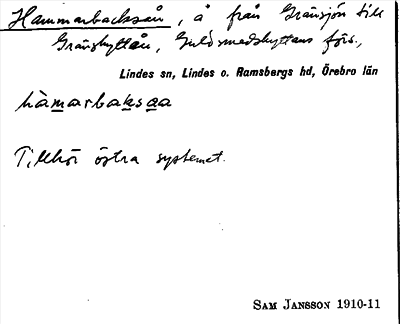 Hammarbacksån, å från Gränsjön till
Gränshyttån, Guldsmedshyttans förs.,
Lindes sn, Lindes o. Ramsbergs hd, Örebro län
hàmarbaksa̱a
Tillhör östra systemet.
SAM JANSSON 1910-11